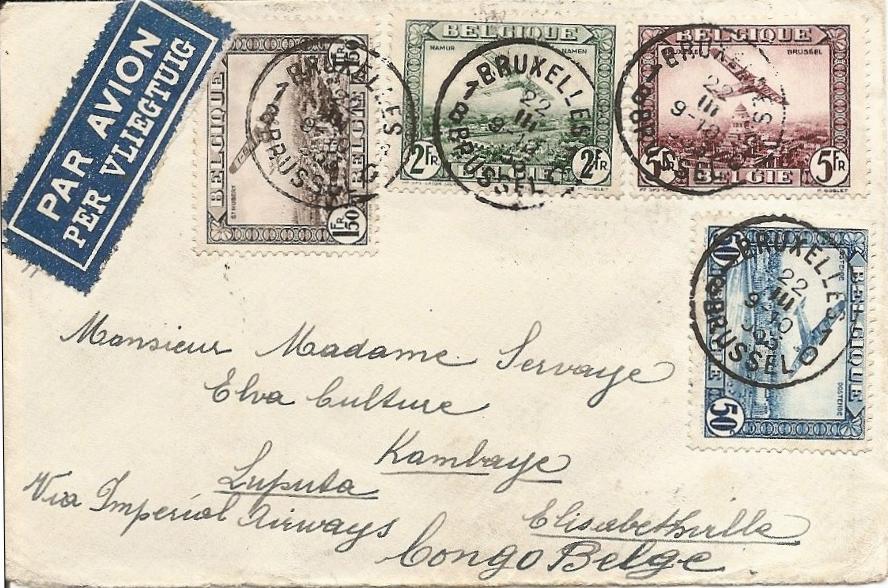 PAR AVION
PER VLIEGTUIG
BELGIQUE
1 FR 50
ST HUBERT
BELGIE
1 FR 50
BRUXELLES
BRUSSEL
BELGIQUE
NAMUR NAMEN
2 FR 2 FR
BRUXELLES
22
III
9-10
BRUSSEL
BELGIQUE
BRUSSEL
5 FR BELGIE 5 FR
BRUXELLES
22
III
9-10
BRUSSEL
BELGIQUE
OOSTENDE
50c
BRUXELLES
22
III
9-10
BRUSSEL
Monsieur Madame Servaye
Elva Culture
Kambaye
Luputa
Via Imperial Airways
Elisabethville
Congo Belge